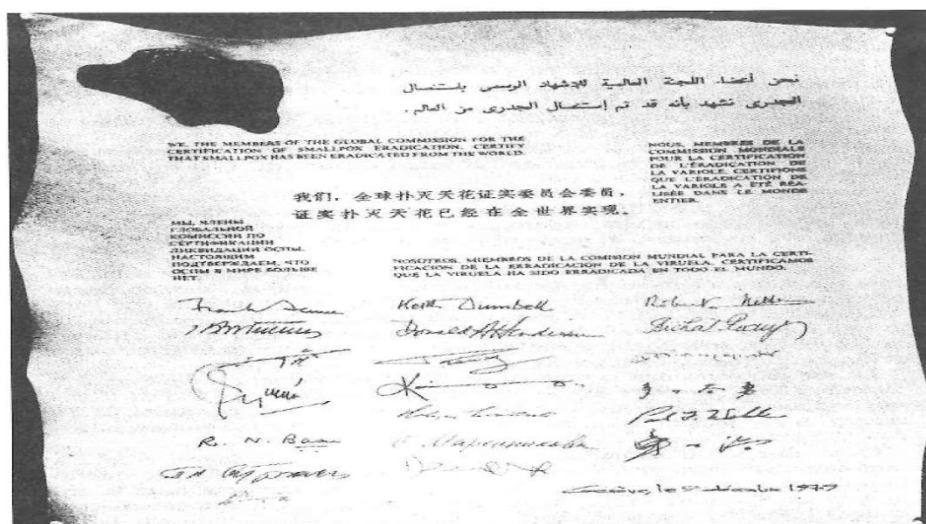 نحن أعضاء اللجنة العالمية للإشهاد الرسمي باستئصال
الجدرى نشهد بأنه قد تم إستئصال الجدرى من العالم .
WE, THE MEMBERS OF THE GLOBAL COMMISSION FOR THE
CERTIFICATION OF SMALLPOX ERADICATION, CERTIFY
THAT SMALLPOX HAS BEEN ERADICATED FROM THE WORLD.
NOUS, MEMBRES DE LA
COMMISSION MONDIALE
POUR LA CERTIFICATION
DE L'ÉRADICATION DE
LA VARIOLE, CERTIFIONS
QUE L'ÉRADICATION DE
LA VARIOLE A ÉTÉ RÉA-
LISÉE DANS LE MONDE
ENTIER.
我们，全球扑灭天花证实委员会委员，
证实扑灭天花已经在全世界实现。
МЫ, ЧЛЕНЫ
ГЛОБАЛЬНОЙ
КОМИССИИ ПО
СЕРТИФИКАЦИИ
ЛИКВИДАЦИИ ОСПЫ,
НАСТОЯЩИМ
ПОДТВЕРЖДАЕМ, ЧТО
ОСПЫ В МИРЕ БОЛЬШЕ
НЕТ.
NOSOTROS, MIEMBROS DE LA COMISION MUNDIAL PARA LA CERTI-
FICACIÓN DE LA ERRADICACIÓN DE LA VIRUELA, CERTIFICAMOS
QUE LA VIRUELA HA SIDO ERRADICADA EN TODO EL MUNDO.
Keith Dumbell
Donald A Henderson
R. N. Basu
Genève, le 9 décembre 1979